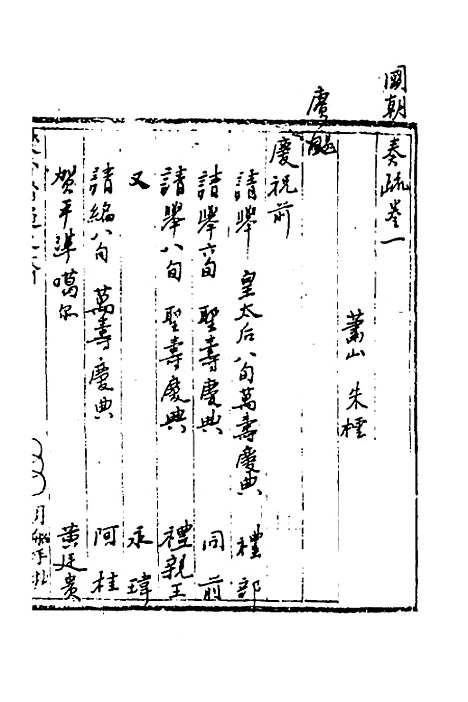 國朝奏疏卷一
蕭山 朱橒
賡颺
慶祝前
請舉 皇太后八旬萬壽慶典 禮部
請舉六旬 聖壽慶典 同前
請舉八旬 聖壽慶典 禮親王
又 永瑋
請編八旬 萬壽慶典 阿桂
賀平準噶尔 黃廷贵